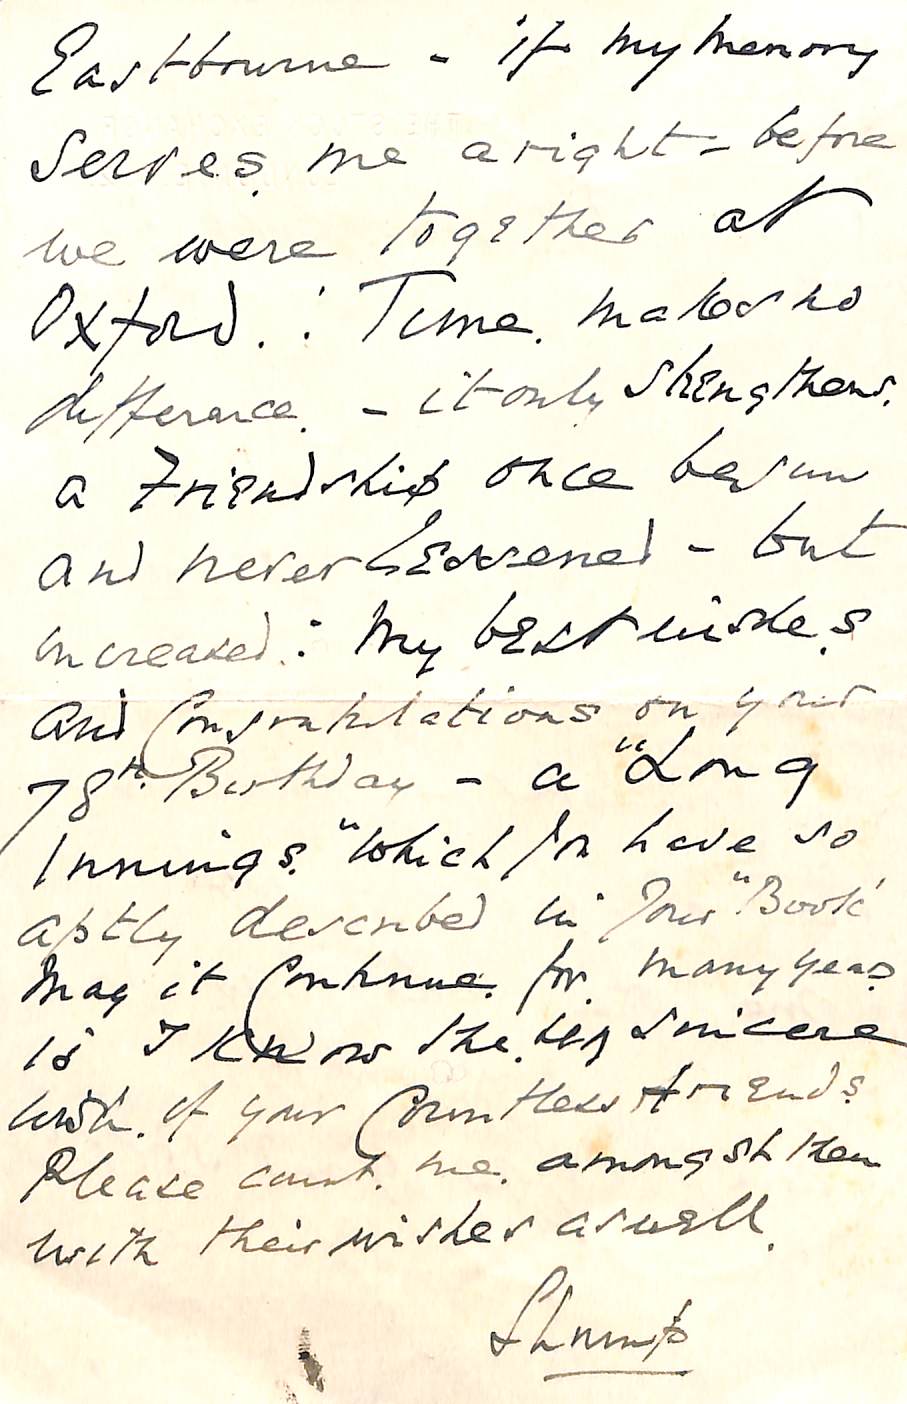 Eastbourne - if my memory
serves me aright - before
we were together at
Oxford. : Time makes no
difference. - it only strengthens
a Friendship once begun
and never lessened - but
increased : My best wishes
and Congratulations on your
78th Birthday - a "Long
Innings." Which you have so
aptly described in your "Book"
May it Continue for many years
is I know the very sincere
wish. of your Countless friends
Please count me amongst them
with their wishes as well.